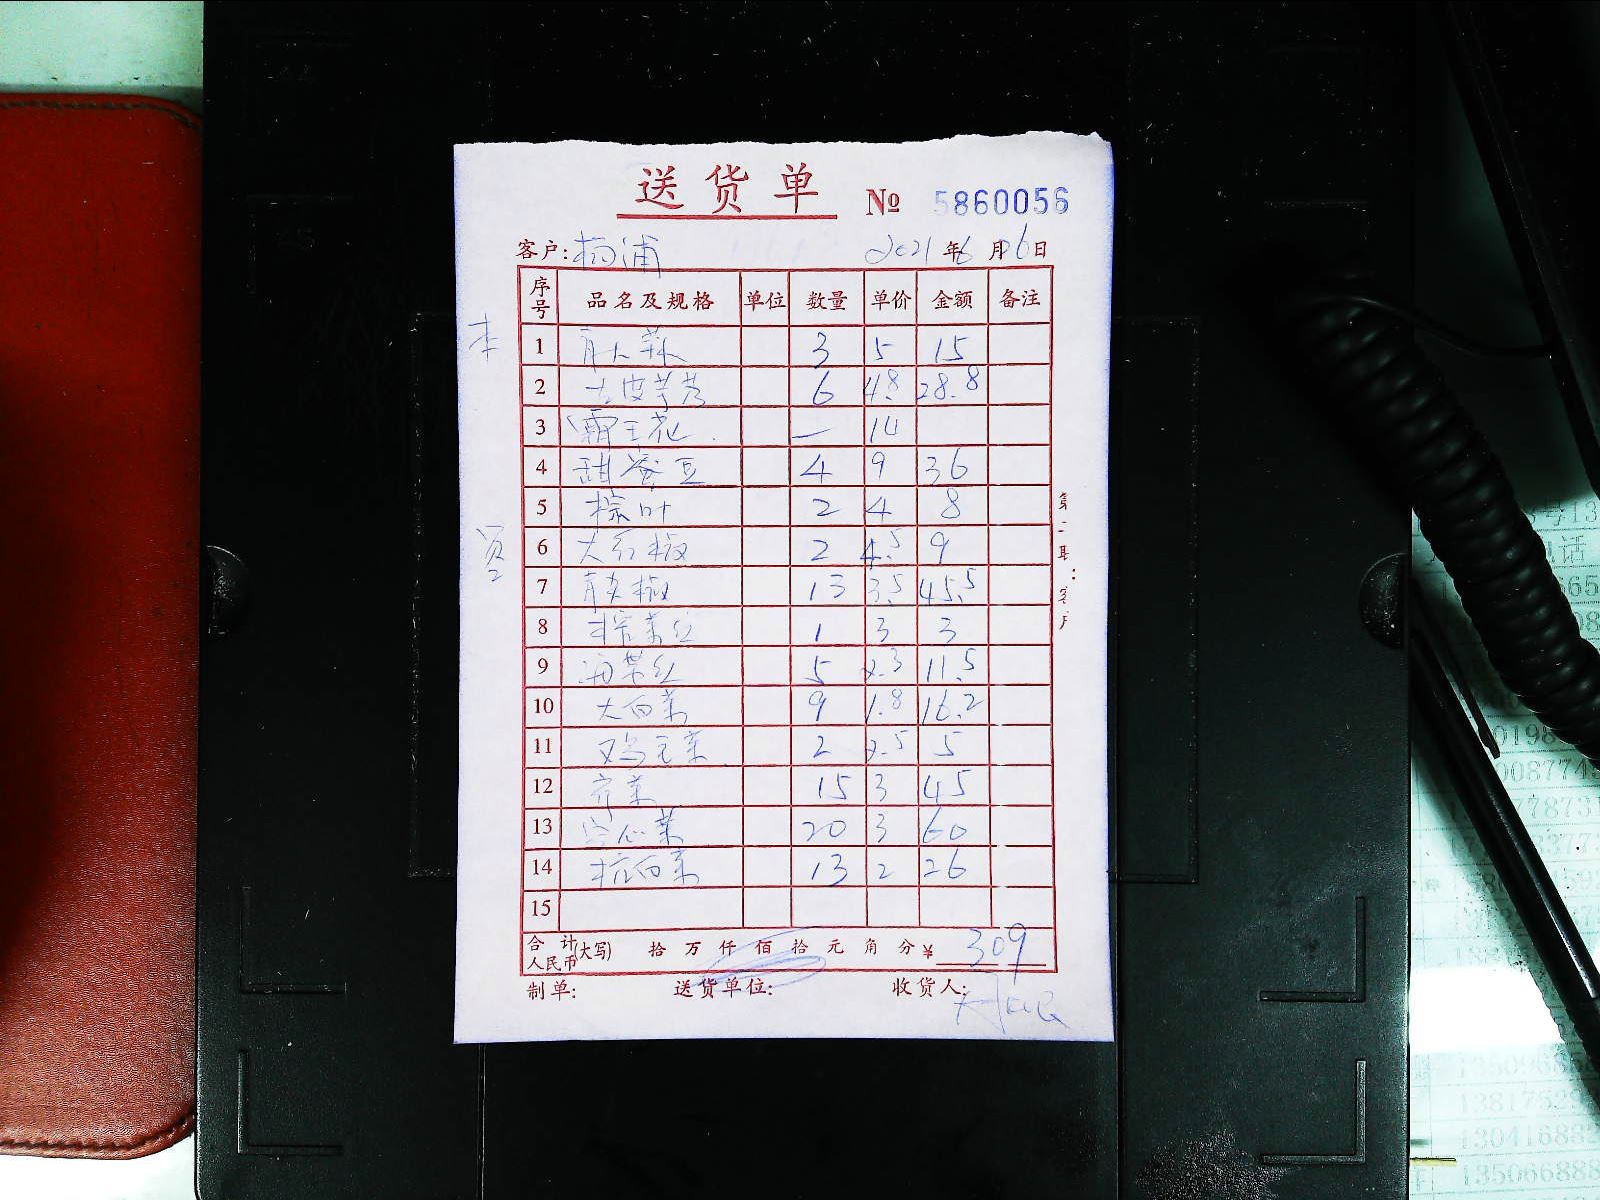 送货单 № 5860056
客户: 杨浦 2021年6月6日
序号 品名及规格 单位 数量 单价 金额 备注
本
1 3 5 15
2 去皮芋艿 6 4.8 28.8
3 霸王花 — 14
4 甜蜜豆 4 9 36
5 粽叶 2 4 8
6 大红椒 2 4.5 9
7 青尖椒 13 3.5 45.5
8 榨菜丝 1 3 3
9 海带丝 5 2.3 11.5
10 大白菜 9 1.8 16.2
11 鸡毛菜 2 2.5 5
12 荠菜 15 3 45
13 空心菜 20 3 60
14 杭白菜 13 2 26
15
第二联:客户
合计人民币(大写) 拾 万 仟 佰 拾 元 角 分 ¥ 309
制单: 送货单位: 收货人: